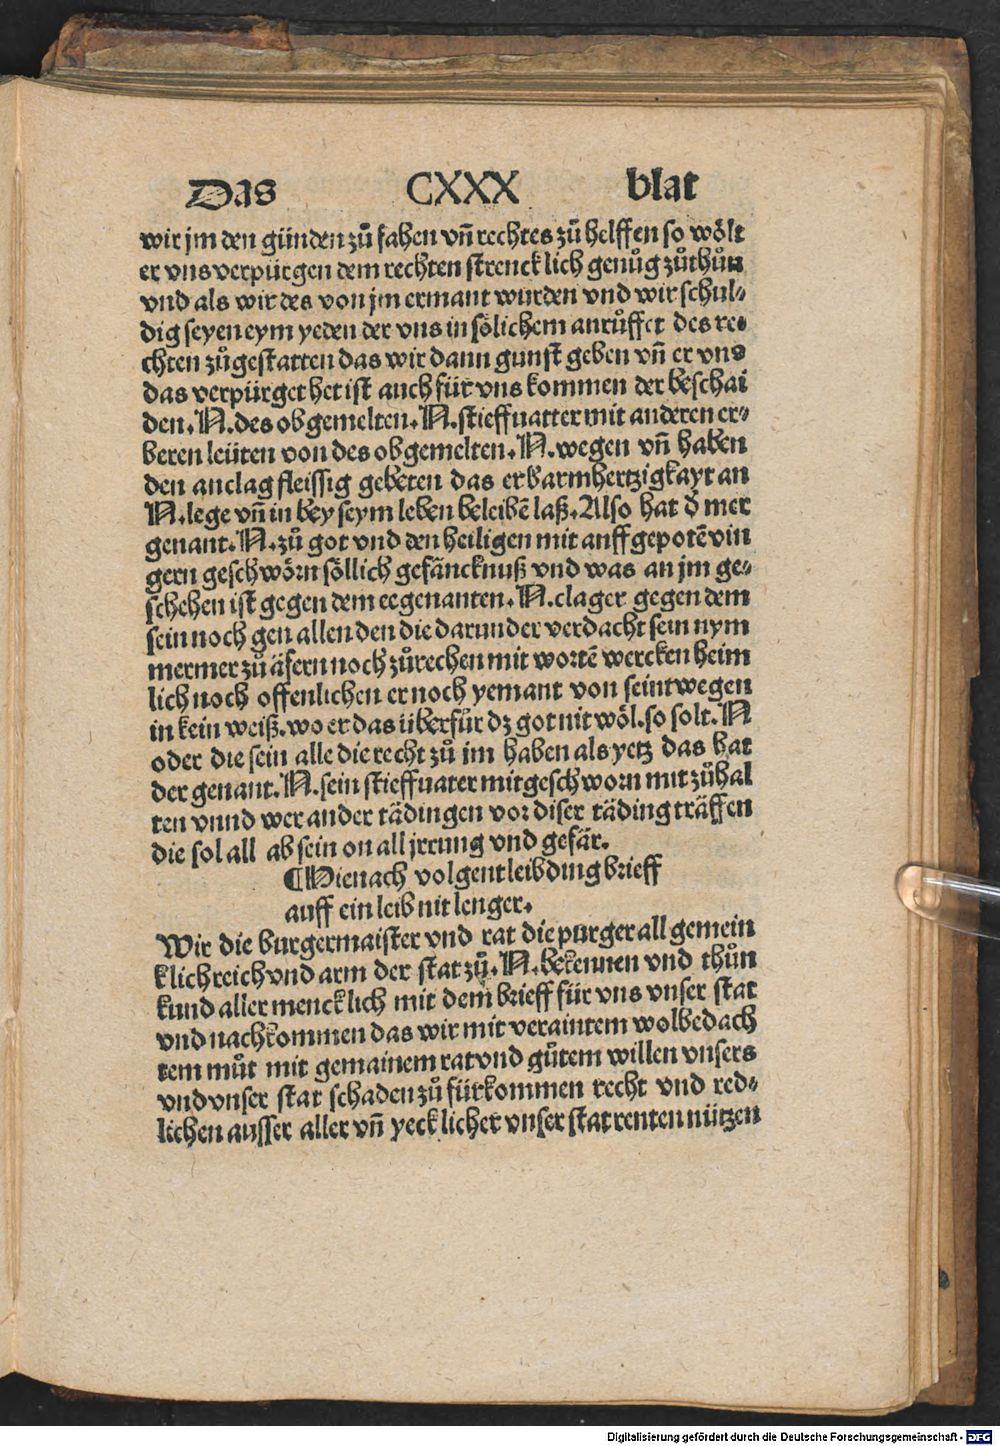 Das CXXX blat
wir jm den günden zů fahen vn̄ rechtes zů helffen so wölt
er vns verpürgen dem rechten strencklich genůg zůthůn
vnd als wir des von jm ermant wurden vnd wir schul⸗
dig seyen eym yeden der vns in sölichem anrůffet des re⸗
chten zůgestatten das wir dann gunst geben vn̄ er vns
das verpürget het ist auch für vns kommen der beschai
den. N. des obgemelten. N. stieffuatter mit anderen er⸗
beren leüten von des obgemelten. N. wegen vn̄ haben
den anclag fleissig gebeten das er barmhertzigkayt an
N. lege vn̄ in bey seym leben beleibē laß. Also hat d̄ mer
genant. N. zů got vnd den heiligen mit auffgepotē vin
gern geschwörn söllich gefäncknuß vnd was an jm ge⸗
schehen ist gegen dem eegenanten. N. clager gegen dem
sein noch gen allen den die darunder verdacht sein nym
mermer zů äfern noch zůrechen mit wortē wercken heim
lich noch offenlichen er noch yemant von seint wegen
in kein weiß. wo er das überfůr dz got nit wöl. so solt. N
oder die sein alle die recht zů jm haben als yetz das hat
der genant. N. sein stieffuater mitgeschworn mit zůhal
ten vnnd wer ander tädingen vor diser täding träffen
die sol all ab sein on all jrrung vnd gefär.
¶Hienach volgent leibding brieff
auff ein leib nit lenger.
Wir die burgermaister vnd rat die purger all gemein
klich reich vnd arm der stat zů. N. bekennen vnd thůn
kund aller mencklich mit dem brieff für vns vnser stat
vnd nachkommen das wir mit veraintem wolbedach
tem můt mit gemainem rat vnd gůtem willen vnsers
vnd vnser stat schaden zů fürkommen recht vnd red⸗
lichen ausser aller vn̄ yecklicher vnser stat renten nützen
Digitalisierung gefördert durch die Deutsche Forschungsgemeinschaft - DFG